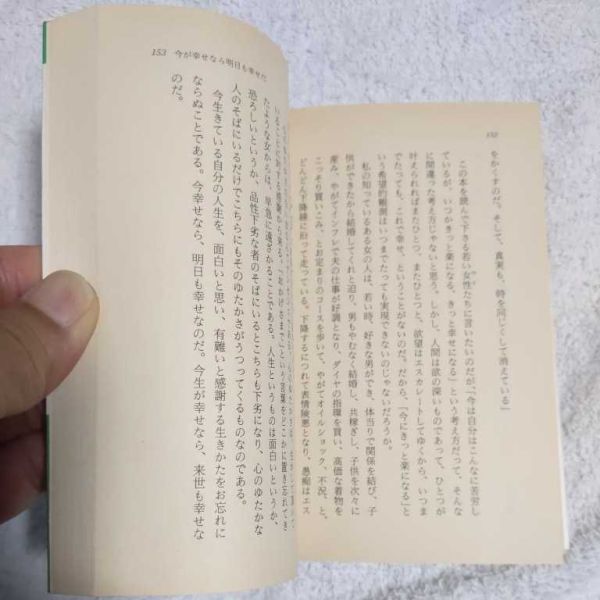 152
をかくすのだ。そして、真実も、時を同じくして消えている」
この本を読んで下さる若い女性たちに言いたいのだが、「今は自分はこんなに苦労し
ているが、いつかきっと楽になる、きっと幸せになる」という考え方だって、そんな
に間違った考え方じゃないと思う。しかし、人間は欲の深いものであって、ひとつが
叶えられればまたひとつ、またひとつと、欲望はエスカレートしてゆくから、いつま
でたっても、これで幸せ、ということがないのだ。だから、「今にきっと楽になる」と
いう希望的観測はいつまでたっても実現できないのじゃないだろうか。
私の知っているある女の人は、若い時、好きな男ができ、体当りで関係を結び、子
供ができたから結婚してくれと迫り、男もやむなく結婚し、共稼ぎし、子供を次々に
産み、やがてインフレで夫の仕事が好調となり、ダイヤの指環を買い、高価な着物を
こっそり買いこみ、とお定まりのコースを歩いて、やがてオイルショック、不況、と、
どんどん下降線に沿って走っている。下降するにつれて表情険悪となり、愚痴はエス
153 今が幸せなら明日も幸せだ
いることに対する感謝から来る。「おかげさまで」という言葉をどこかに置き忘れてき
たような女からは、早急に遠ざかることである。人生というものは面白いというか、
恐ろしいというか、品性下劣な者のそばにいるとこちらも下劣になり、心のゆたかな
人のそばにいるだけでこちらにもそのゆたかさがうつってくるものなのである。
今生きている自分の人生を、面白いと思い、有難いと感謝する生きかたをお忘れに
ならぬことである。今幸せなら、明日も幸せなのだ。今生が幸せなら、来世も幸せな
のだ。